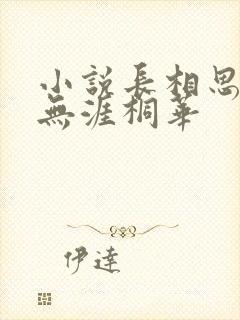 小說長相思
無涯桐華
伊達